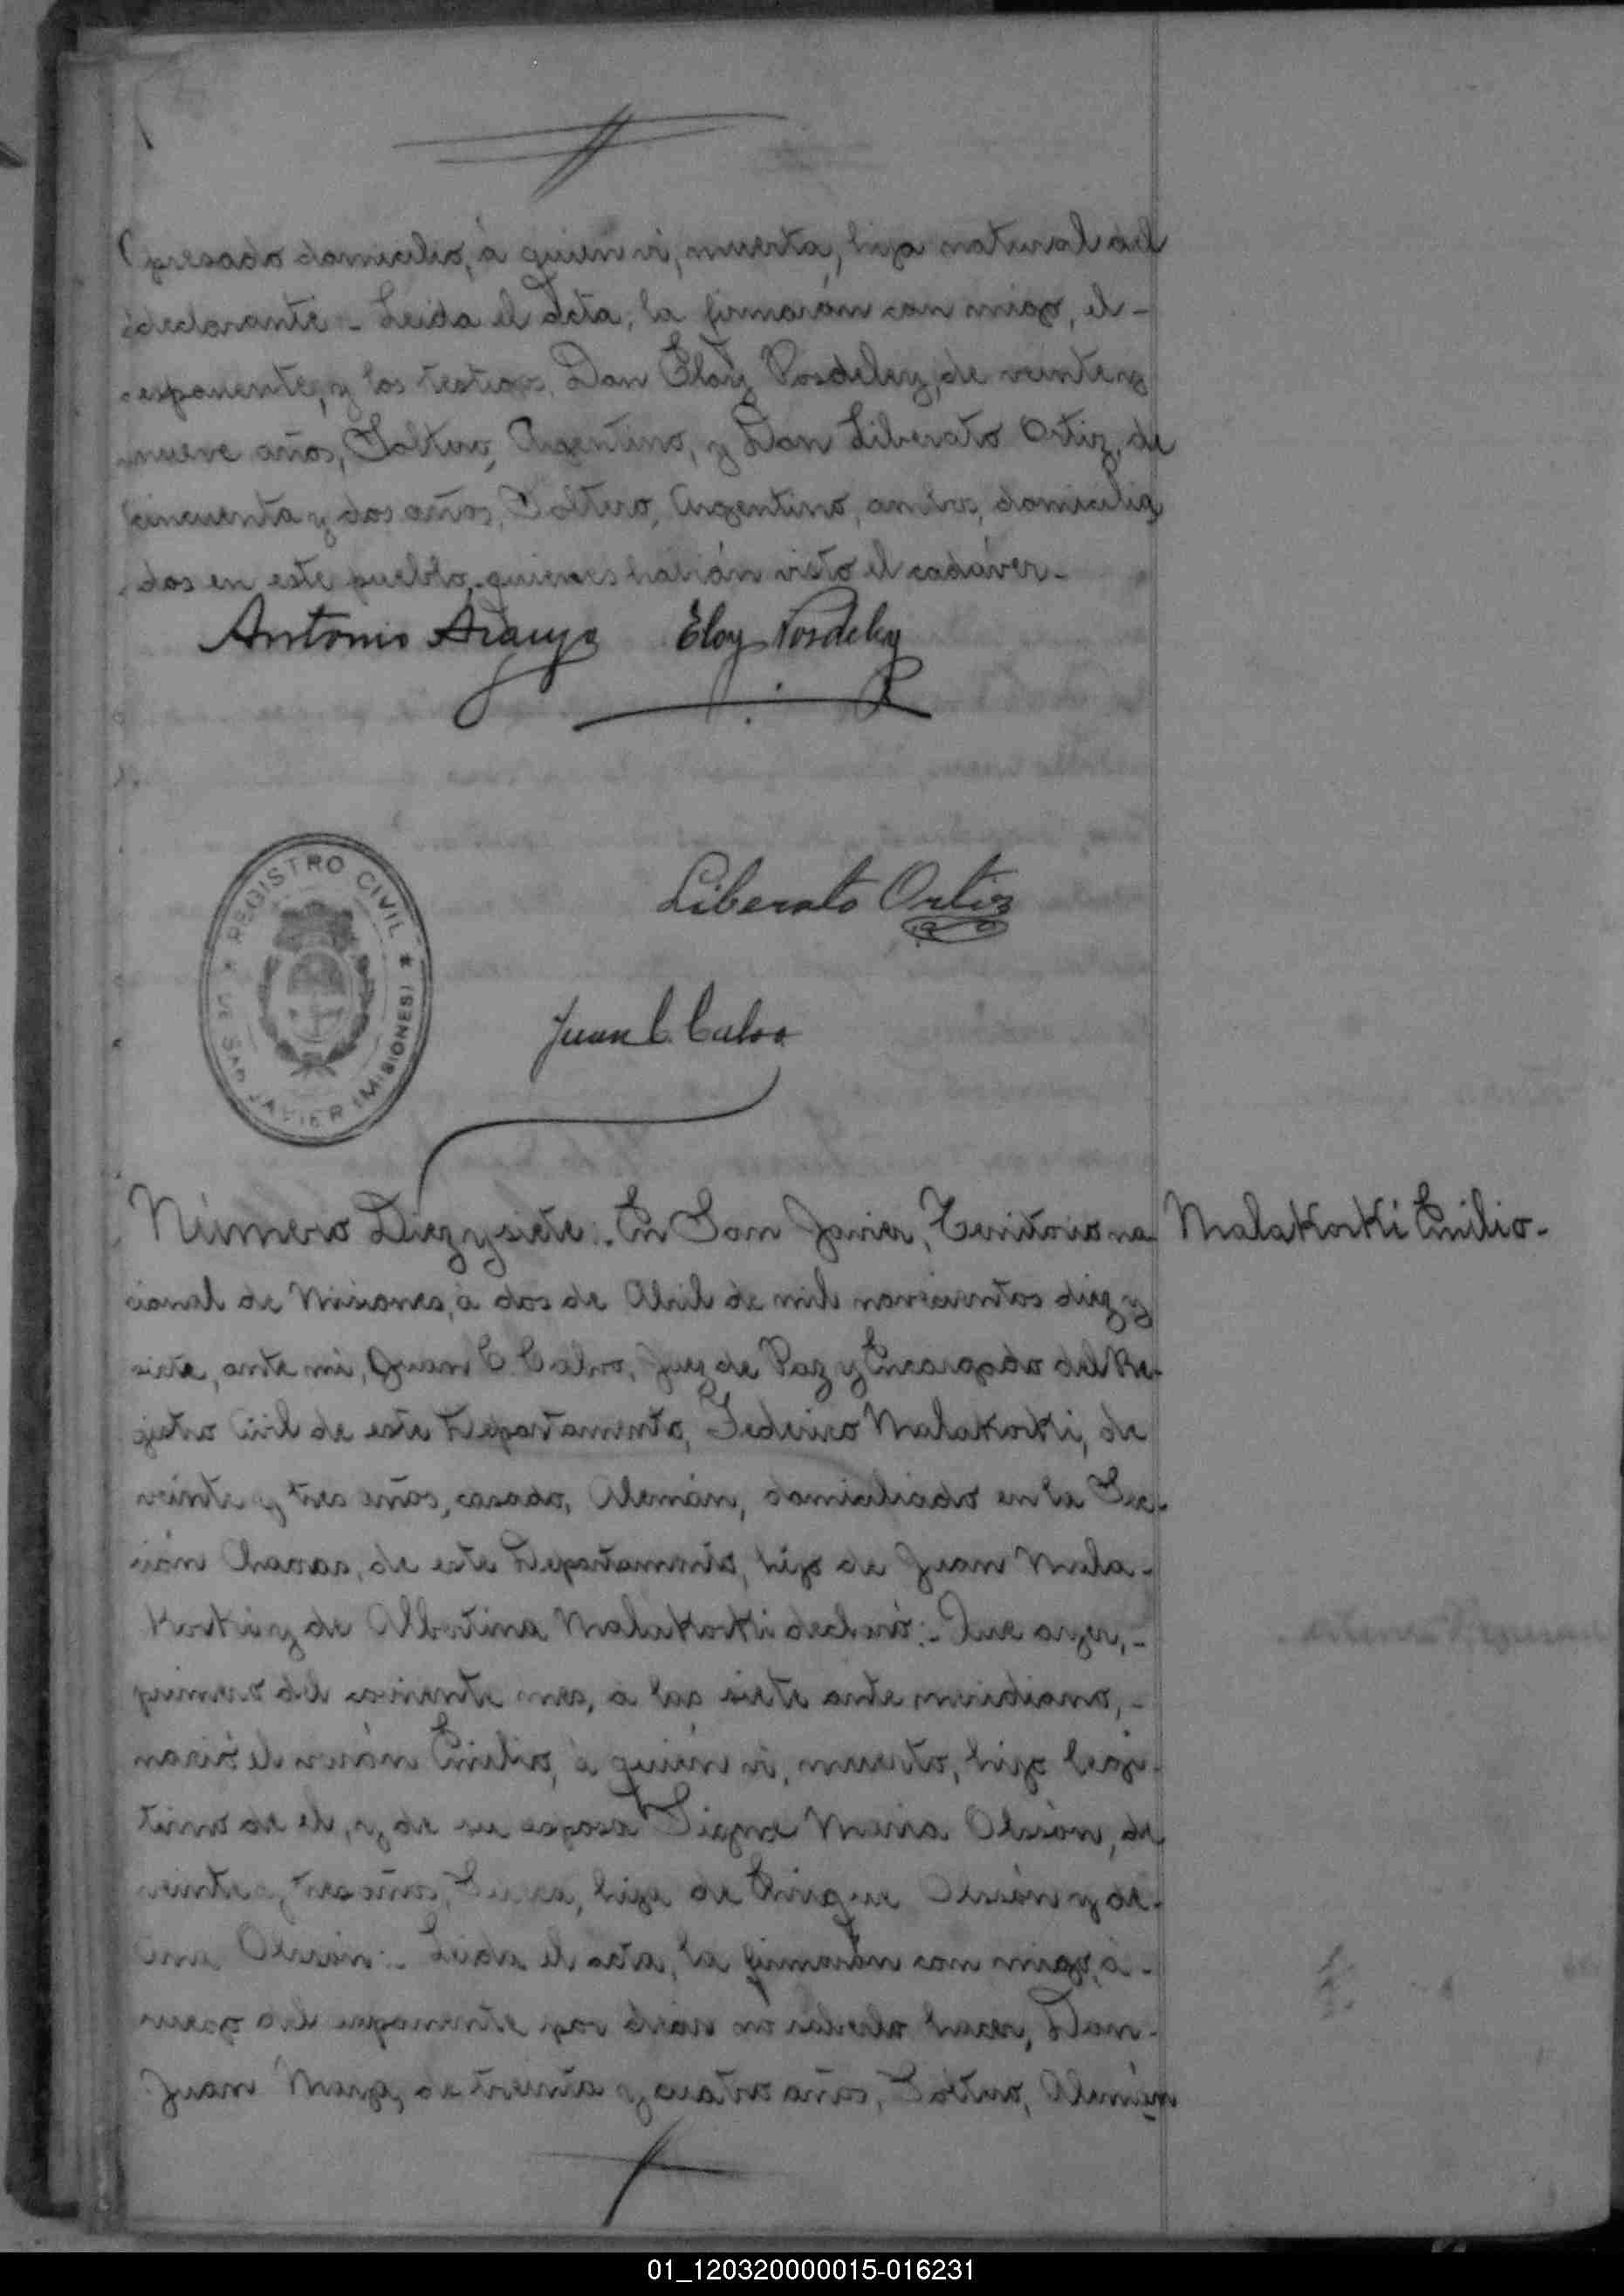 presado domicilio, á quien vi, muerta, hija natural del
declarante - Leida el Acta, la firmarón con migo, el -
esponente, y los testigos, Don Eloy Posdeley, de veinte y
nueve años, Soltero, Argentino, y Don Liberato Ortiz, de
cincuenta y dos años, Soltero, Argentino, ambos, domicilia
dos en este pueblo, quienes habián visto el cadáver -
Antonio Araujo Eloy Posdeley
REGISTRO CIVIL
DE SAN JAVIER (MISIONES)
Liberato Ortiz
Juan C. Calvo
Número Diez y siete :- En San Javier, Territorio na
Malakorki Emilio -
cional de Misiones, á dos de Abril de mil novecientos diez y
siete, ante mi, Juan C. Calvo, Juez de Paz y Encargado del Re-
jistro Civil de este Departamento, Federico Malakorki, de
veinte y tres años, casado, Alemán, domiciliado en la Sec-
ción de este Departamento, hijo de Juan Mala-
korki y de Albertina Malakorki declaró :- Que ayer, -
primero del corriente mes, á las siete ante meridiano, -
el varón Emilio, á quién vi, muerto, hijo
de el, y de su esposa Maria de
veinte y tres años, hija de y de
:- Leida el acta, la firmarón con migo, á -
ruego del esponente por no saber hacer, Don -
Juan de treinta y cuatro años, Soltero, Alemán
01_120320000015-016231